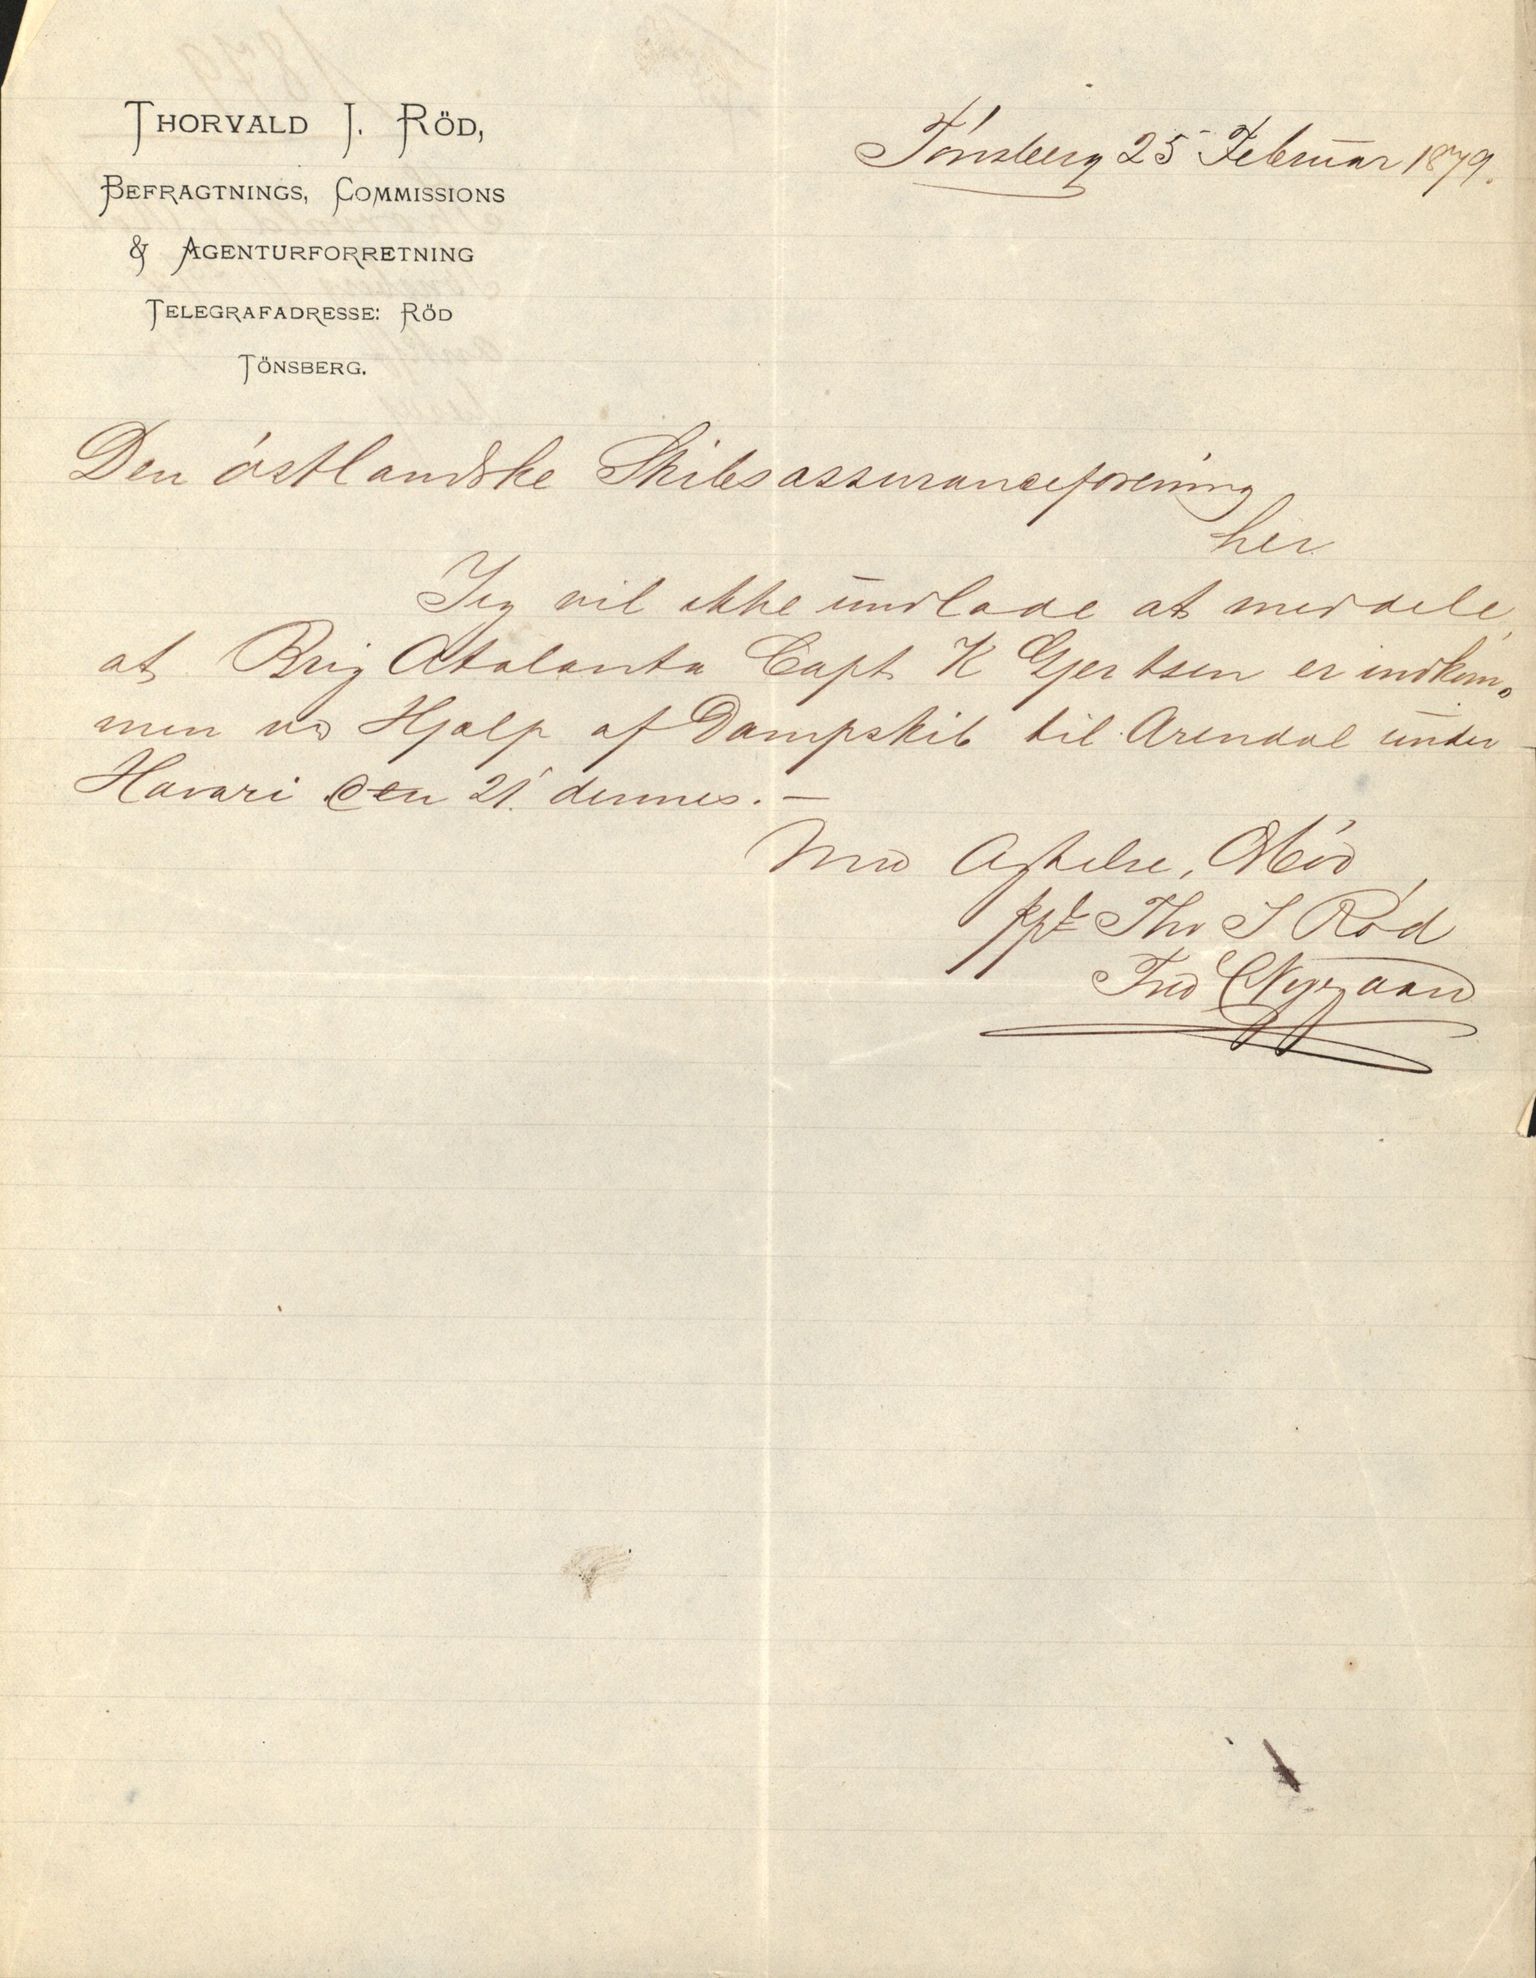 THORVALD J. RÖD,
BEFRAGTNINGS, COMMISSIONS
& AGENTURFORRETNING
TELEGRAFADRESSE: RÖD
TÖNSBERG.
Tönsberg 25 Februar 1879.
Den östlandske Skibsassuranceforening
her
Jeg vil ikke undlade at meddele,
at Brig Atalanta Capt K Gjertsen er indkom,
men ved Hjælp af Dampskib til Arendal under
Havari den 21. dennes. —
Med Agtelse,
ppt Thv J Röd
Fred Nygaard